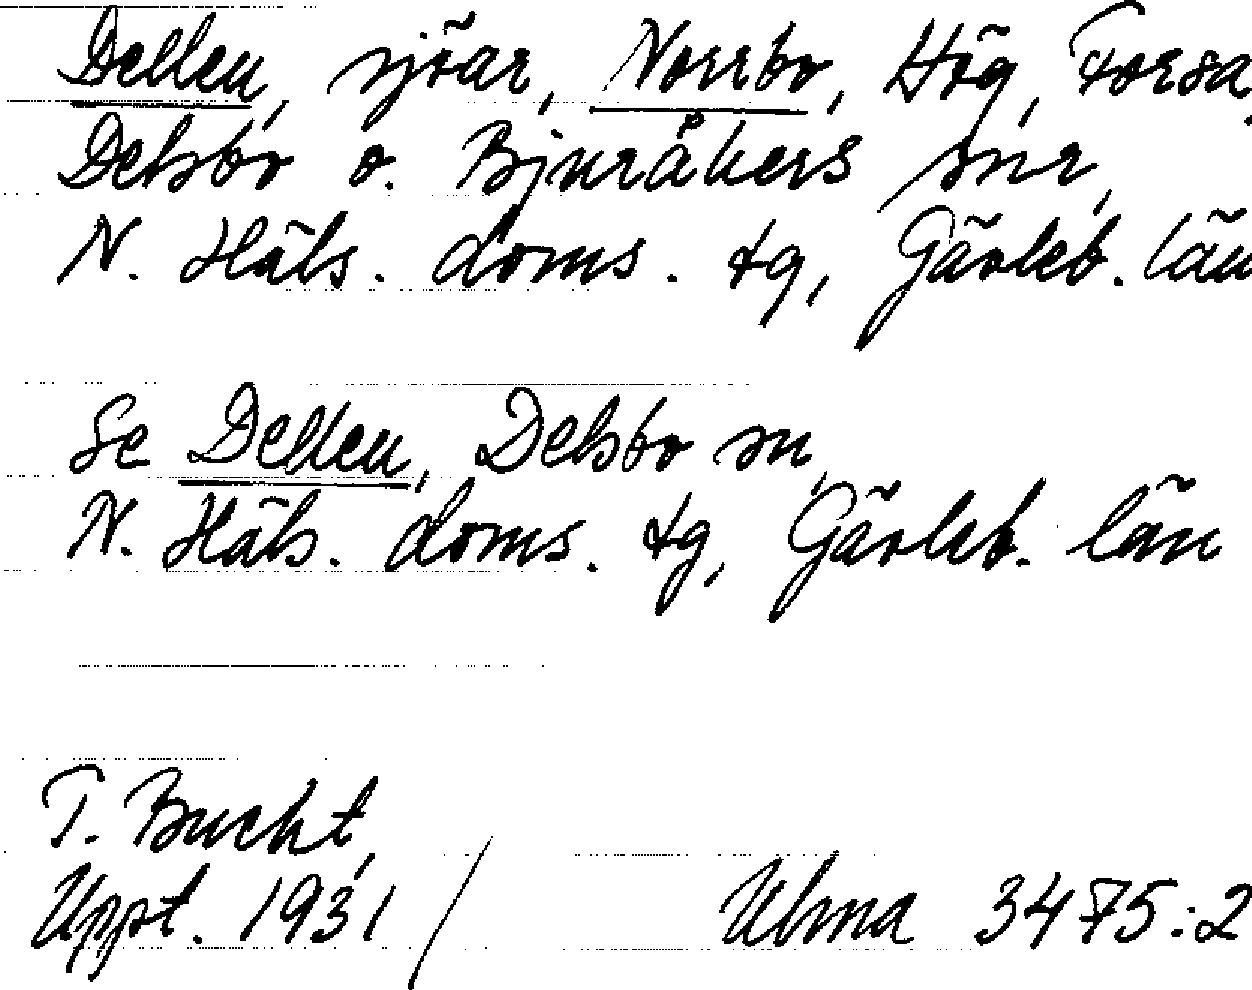 Dellen, sjöar, Norrbo, Hög, Forsa,
Delsbo o. Bjuråkers snr,
N. Häls. doms. tg, Gävleb. län
Se Dellen, Delsbo sn,
N. Häls. doms. tg, Gävleb. län
T. Bucht,
Uppt. 1931 / Ulma 3475:2